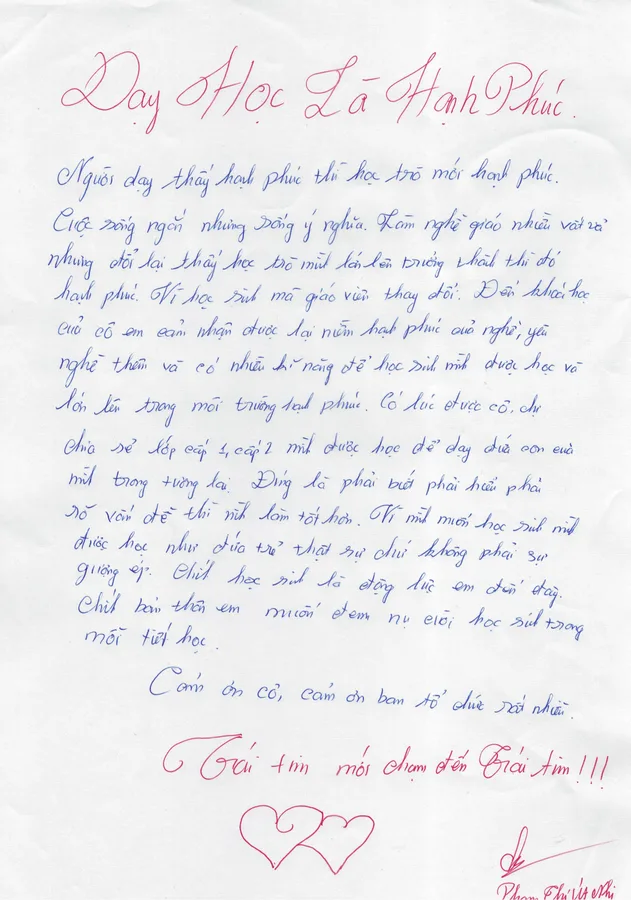 Dạy Học Là Hạnh Phúc.
Người dạy thấy hạnh phúc thì học trò mới hạnh phúc.
Cuộc sống ngắn nhưng sống ý nghĩa. Làm nghề giáo nhiều vất vả
nhưng đổi lại thấy học trò mình lớn lên trưởng thành thì đó
hạnh phúc. Vì học sinh mà giáo viên thay đổi. Đến khoá học
của cô em cảm nhận được lại niềm hạnh phúc của nghề, yêu
nghề thêm và có nhiều kĩ năng để học sinh mình được học và
lớn lên trong môi trường hạnh phúc. Có lúc được cô, chị
chia sẻ lớp cấp 1, cấp 2 mình được học để dạy đứa con của
mình trong tương lai. Đúng là phải biết phải hiểu phải
rõ vấn đề thì mình làm tốt hơn. Vì mình muốn học sinh mình
được học như đứa trẻ thật sự chứ không phải sự
gượng ép. Chính học sinh là động lực em đến đây.
Chính bản thân em muốn đem nụ cười học sinh trong
mỗi tiết học.
Cám ơn cô, cảm ơn ban tổ chức rất nhiều.
Trái tim mới chạm đến Trái tim!!!
Phạm Thị Nhi